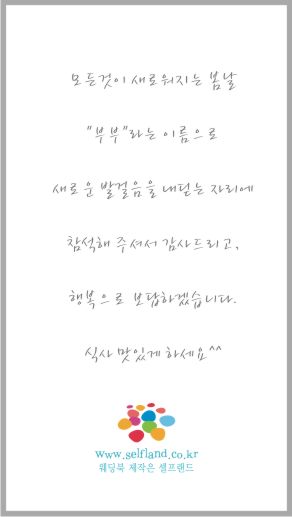 모든것이 새로워지는 봄날
"부부"라는 이름으로
새로운 발걸음을 내딛는 자리에
참석해 주셔서 감사드리고,
행복으로 보답하겠습니다.
식사 맛있게 하세요^^
www.selfland.co.kr
웨딩북 제작은 셀프랜드